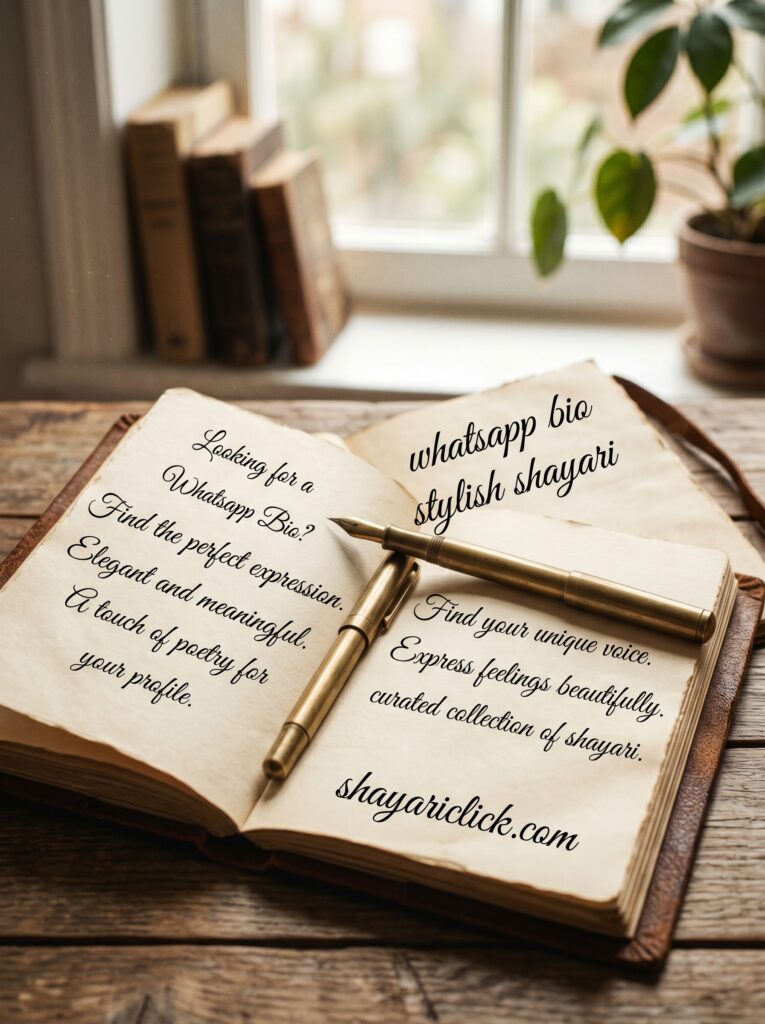 Looking for a
Whatsapp Bio?
Find the perfect expression.
Elegant and meaningful.
A touch of poetry for
your profile.
whatsapp bio
stylish shayari
Find your unique voice.
Express feelings beautifully.
curated collection of shayari.
shayariclick.com